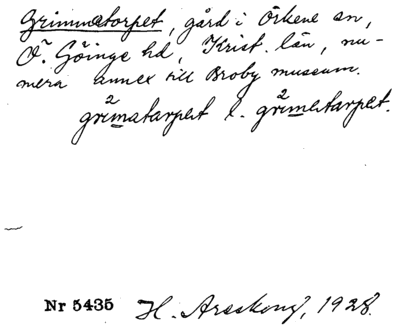 Grimmatorpet, gård i Örkene sn,
Ö. Göinge hd, Krist. län, nu-
mera annex till Broby museum.
gri²matarpet l. gri²mestarpet.
Nr 5435 H. Areskog, 1928.